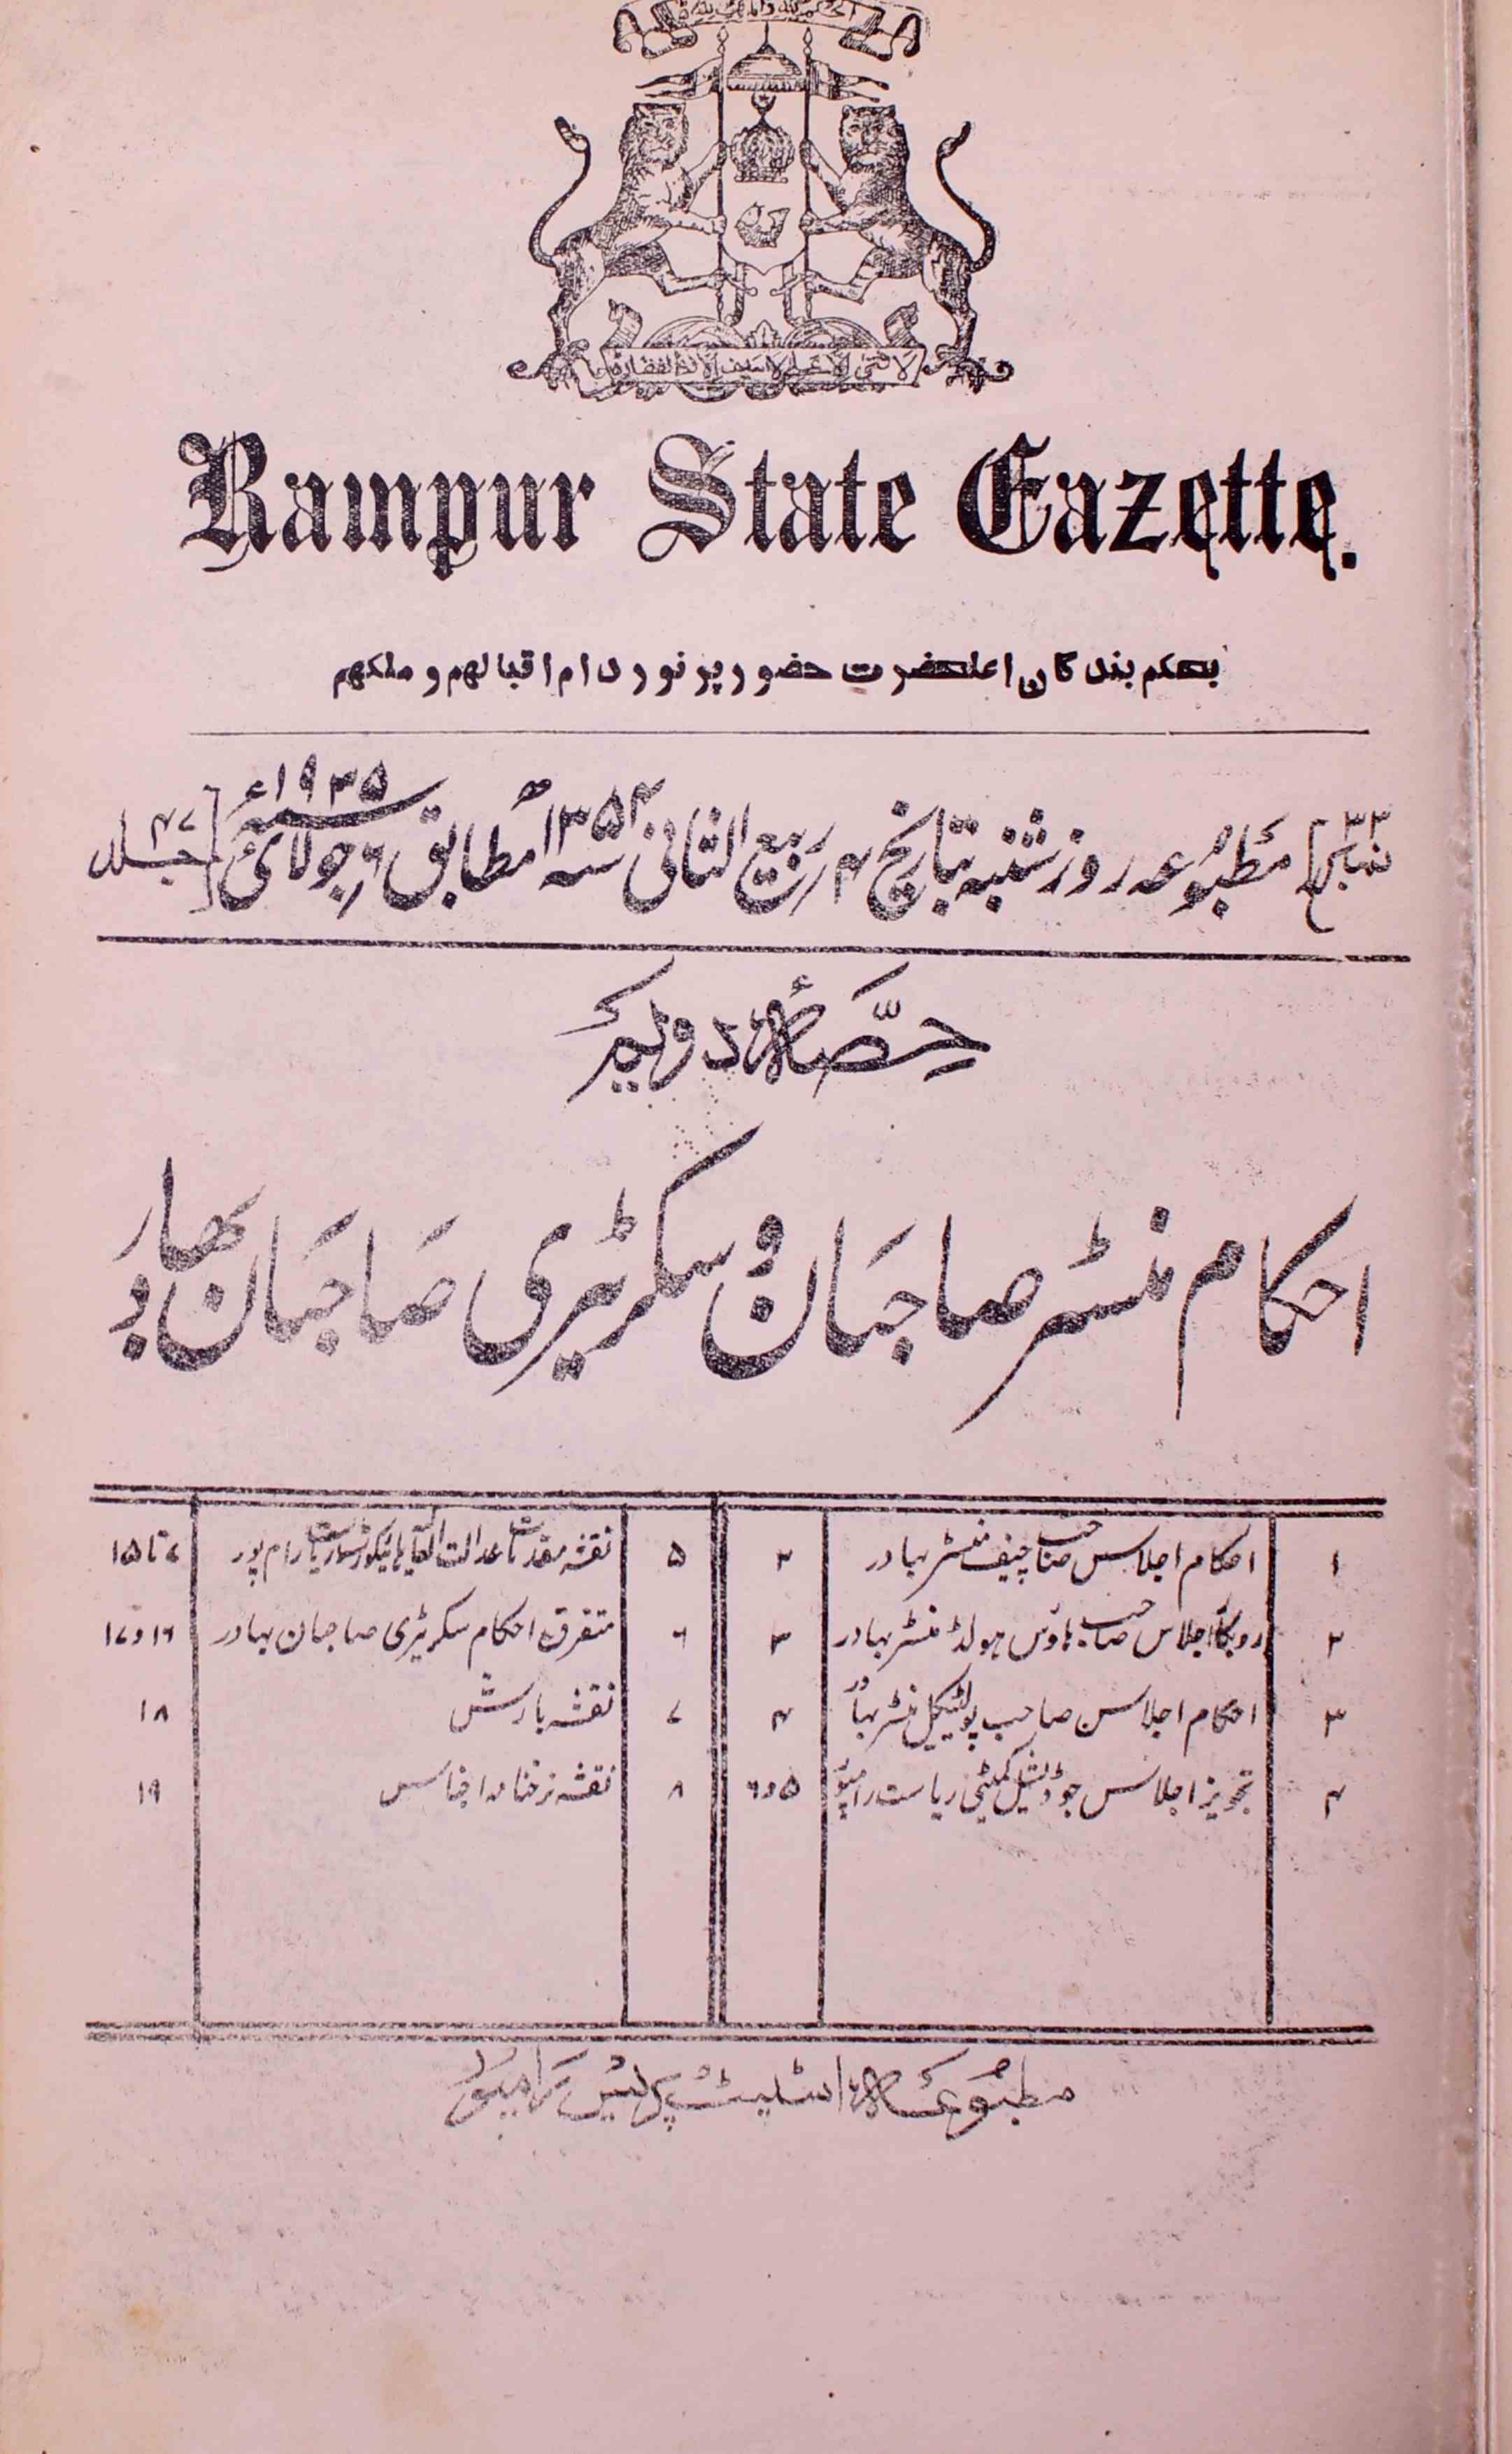 الحكم لله والملك لله
لا فتى الا على لا سيف الا ذوالفقار
Rampur State Gazette.
بحكم بندگان اعلحضرت حضور پر نور دام اقبالهم و ملكهم
نمبر ۳۳] مطبوعہ روز شنبہ بتاریخ ۴ ربیع الثانی سنہ ۱۳۵۴ھ مطابق ۶ جولائی سنہ ۱۹۳۵ء [جلد ۴۷
حصّہ دویم
احکام منسٹر صاحبان و سکریٹری صاحبان بہادر
۱ احکام اجلاس صاحب چیف منسٹر بہادر ۲
۲ روبکار اجلاس صاحب ہاؤس ہولڈ منسٹر بہادر ۳
۳ احکام اجلاس صاحب پولٹیکل منسٹر بہادر ۴
۴ تجویز اجلاس جوڈیشیل کمیٹی ریاست رامپور ۵ و ۶
۵ نقشہ مقدمات عدالت العالیہ ہائیکورٹ ریاست رام پور ۷ تا ۱۵
۶ متفرق احکام سکریٹری صاحبان بہادر ۱۶ و ۱۷
۷ نقشہ بارش ۱۸
۸ نقشہ نرخنامہ اجناس ۱۹
مطبوعہ اسٹیٹ پریس رامپور